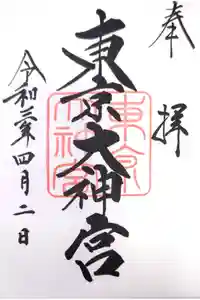 奉拝
東京大神宮
東京大神宮
令和三年四月二日